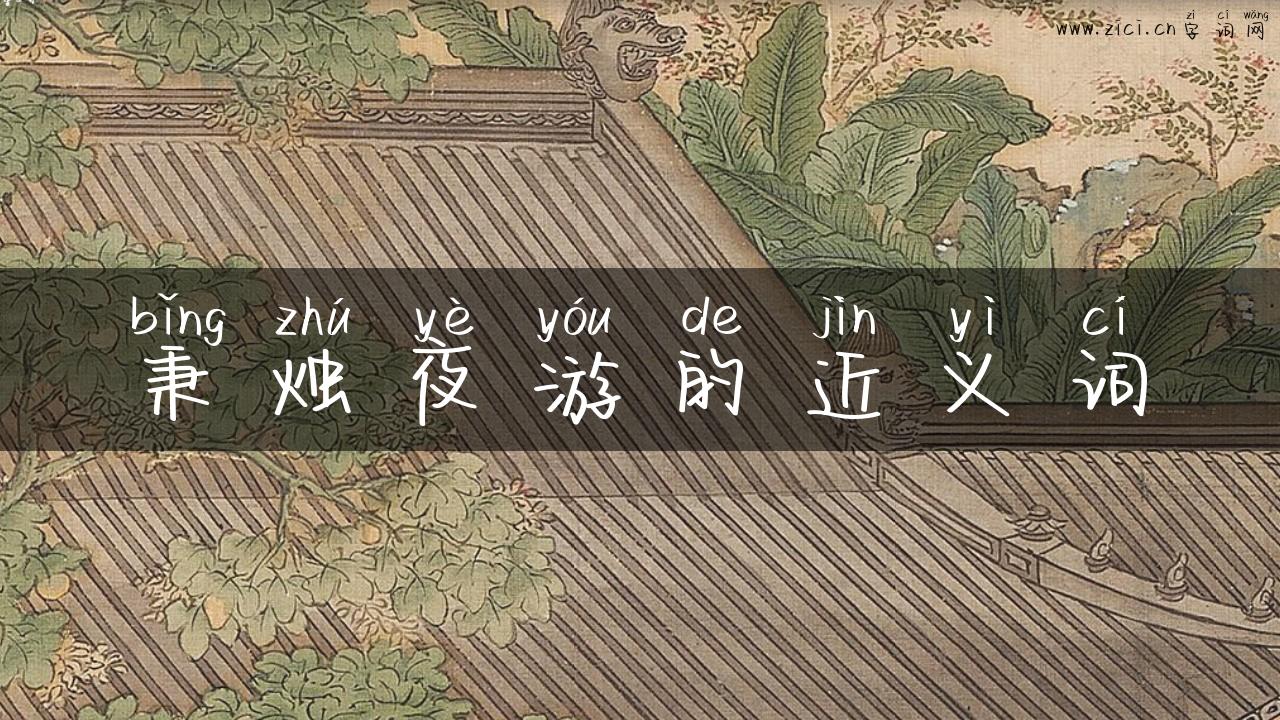 zì cí wǎng
www.zici.cn 字词网
bǐng zhú yè yóu de jìn yì cí
秉烛夜游的近义词